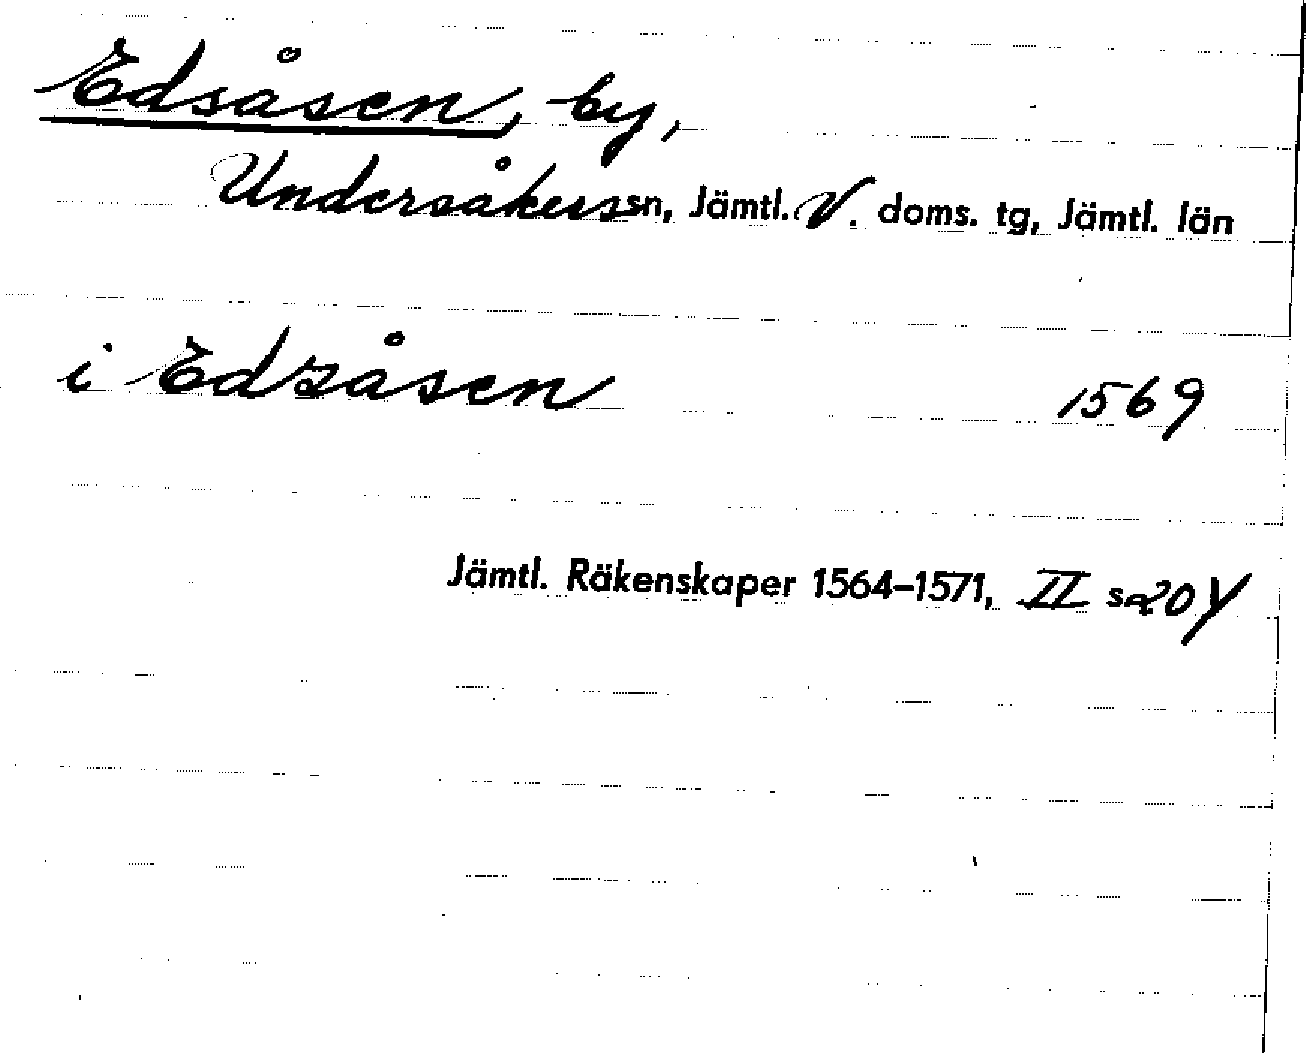 Edsåsen, by,
Undersåkers sn, Jämtl. V. doms. tg, Jämtl. län
i Edzåsen 1569
Jämtl. Räkenskaper 1564–1571, II s.